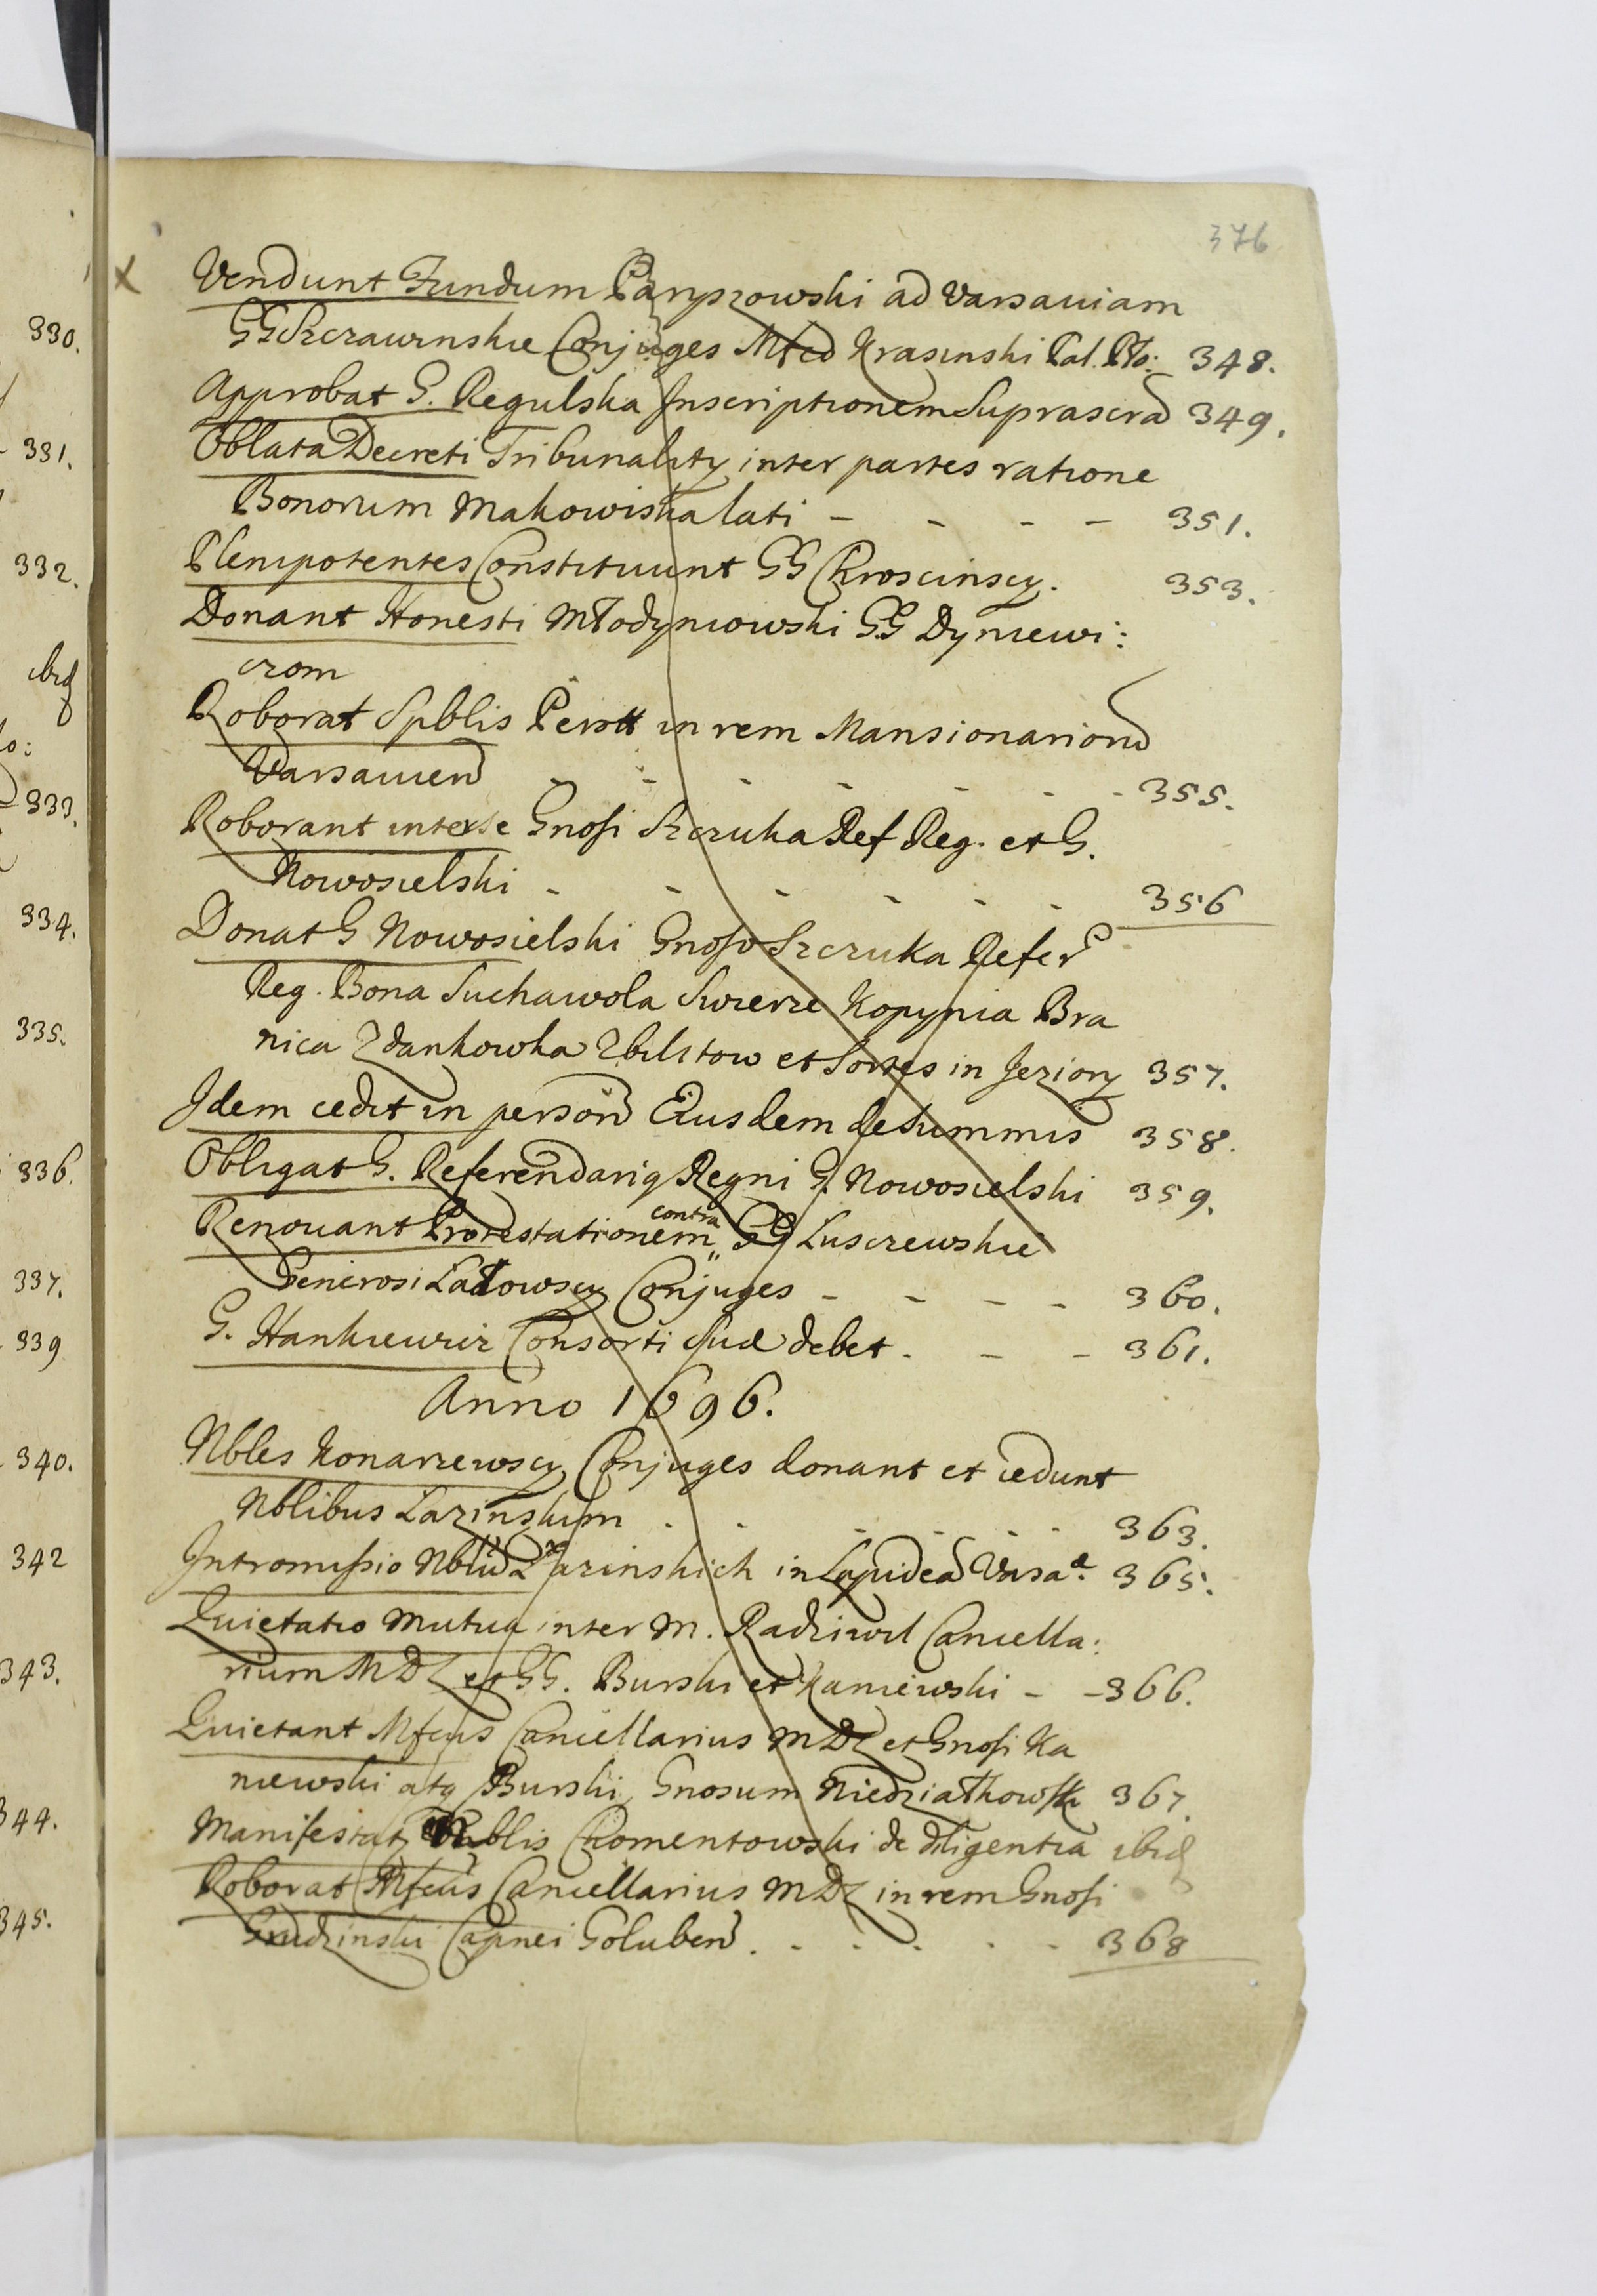 376
Vendunt Fundum Paryszowski ad Varsauiam
GG Szczawinskie Conjuges Mfco Krasinski Pal. Plo: 348.
Approbat G. Regulska Inscriptionem Suprascra 349.
Oblata Decreti Tribunality inter partes ratione
Bonorum Makowiska lati - - - - 351.
Plenipotentes Constituunt GG Kroscinscy. 353.
Donant Honesti Młodyniowski GG Dyniewi:
czom
Roborat Spblis Perott in rem Mansionariorū
Varsauien - - - - - - 355.
Roborant interse Gnosi Szczuka Ref Reg. et G.
Nowosielski - - - - - - 356
Donat G Nowosielski Gnoso Szczuka Refer
Reg. Bona Suchawola Swierze Kopynia Bra
nica Zdankowka Zbilitow et Sortes in Jeziory 357.
Idem cedit in person Eiusdem de summis 358.
Obligat G. Referendarig Regni G. Nowosielski 359.
Renouant Protestationem contra GG Lusczewskie
Generosi Latowscy Conjuges - - - - 360.
G. Hankiewicz Consorti suæ debet. - - 361.
Anno 1696.
Nbles Konarzewscy Conjuges donant et cedunt
Nblibus Lazinskim - - - - - - 363.
Intromissio Nbliū Lazinskich in Lapideā Varsa. 365.
Quietatio Mutua inter M. Radziwil Cancella:
rium MDL et GG. Burski et Kaniewski - - 366.
Quietant Mfcus Cancellarius MDL et Gnosi Ka
niewski atq Burski Gnosum Niedziałkowsk 367.
Manifestat Nblis Chomentowski de diligentia ibid
Roborat Mfcus Cancellarius MDL in rem Gnosi
Grudzinski Capnei Goluben . - . . - . 368
330.
331.
332.
ibid
333.
334.
335.
336.
337.
339
340.
342
343.
344.
345.